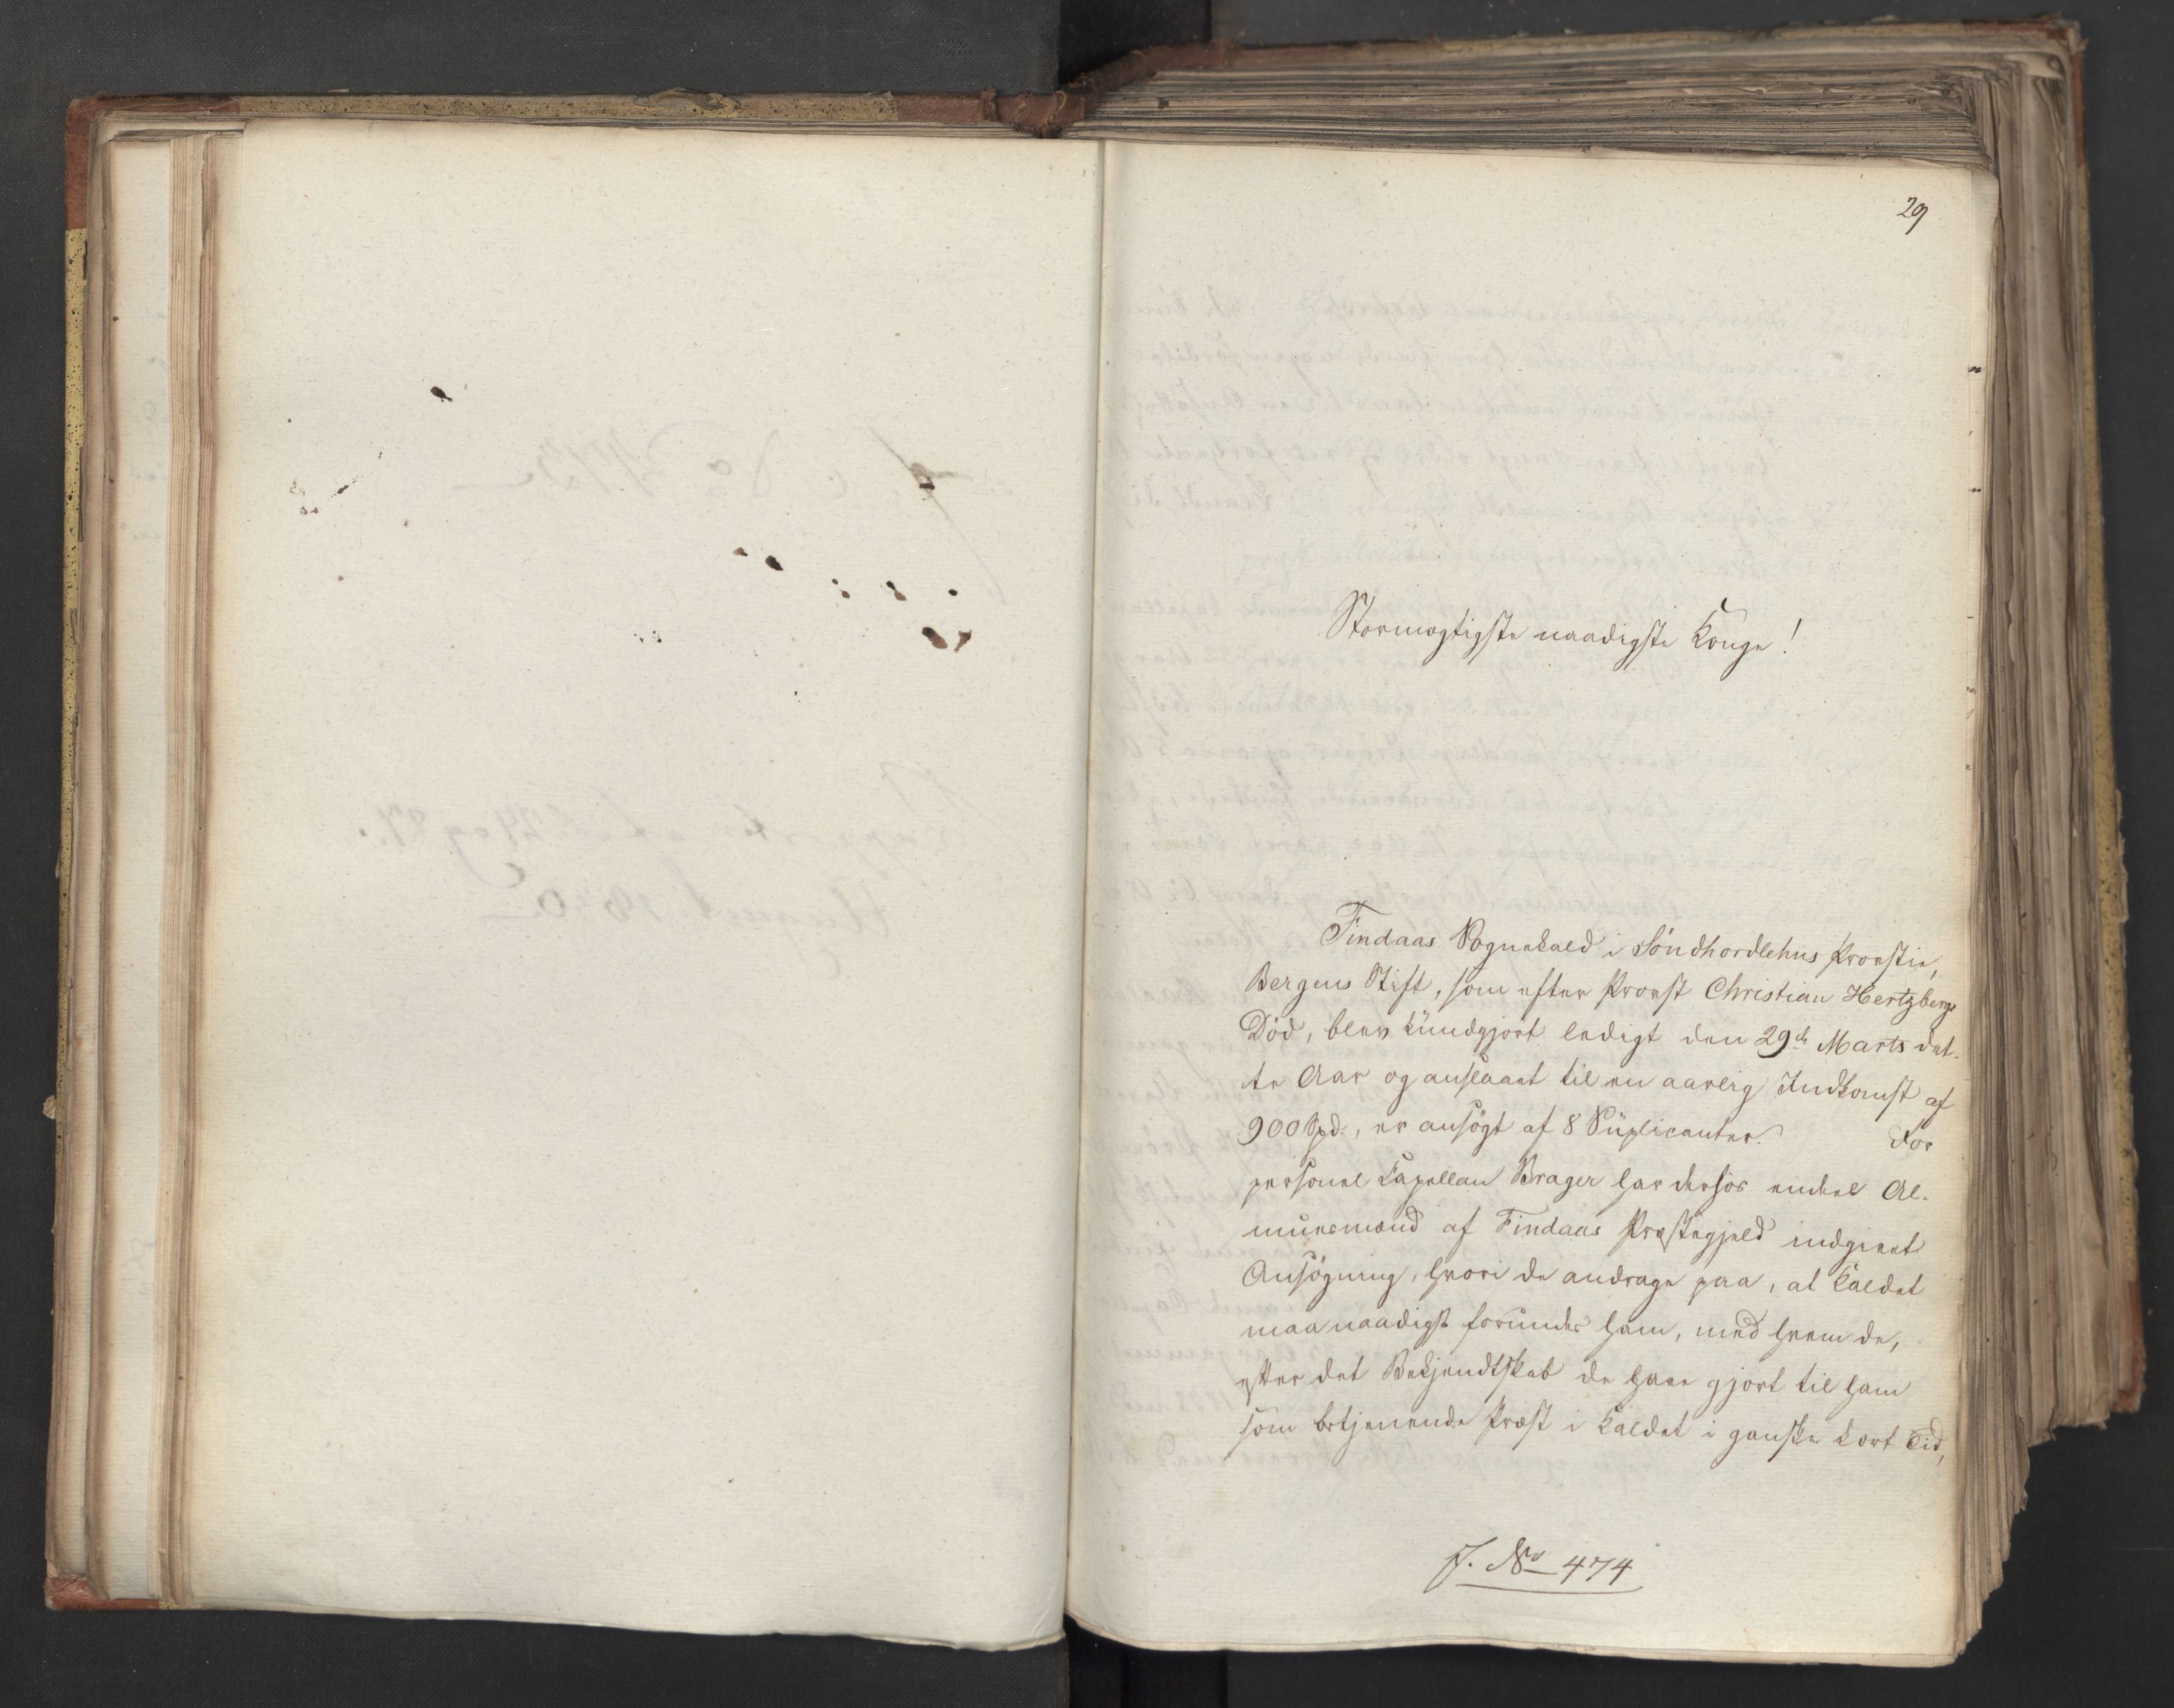 29
Stormægtigste naadigste Konge!
Findaas Sognekald i Söndhordlehns Provstie,
Bergens Stift, som efter Provst Christian Hertzbergs
Död, blev kundgjort ledigt den 29de Marts det-
te Aar og anslaaet til en aarlig Indkomst af
900 Spd., er ansögt af 8 Suplicanter. For
personel Capellan Brager har derhos endeel Al-
muesmænd af Findaas Præstegjeld indgivet
Ansögning, hvori de andrage paa, at Kaldet
maa naadigst forundes ham, med hvem de,
efter det Bekjendtskab de have gjort til ham
som betjenende Præst i Kaldet i ganske kort Tid,
J. No 474